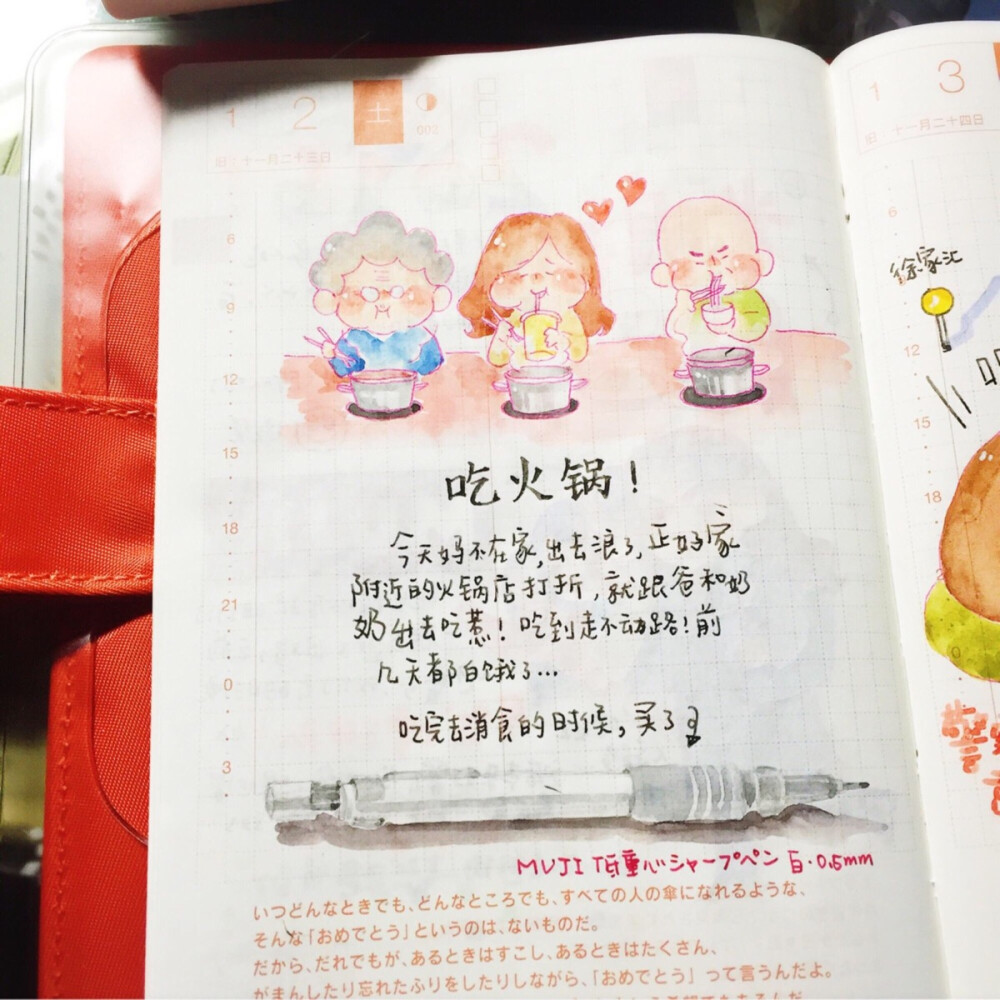 1 2 土
002
旧 十一月二十三日
6
9
12
15
18
21
0
3
吃火锅！
今天妈不在家,出去浪了,正好家
附近的火锅店打折,就跟爸和奶
奶出去吃惹！吃到走不动路！前
几天都白饿了…
吃完去消食的时候,买了
MUJI 低重心シャープペン 白・0.5mm
いつどんなときでも、どんなところでも、すべての人の傘になれるような、
そんな「おめでとう」というのは、ないものだ。
だから、だれでもが、あるときはすこし、あるときはたくさん、
がまんしたり忘れたふりをしたりしながら、「おめでとう」って言うんだよ。
1 3
旧 十一月二十四日
6
徐家汇
12
15
18
0